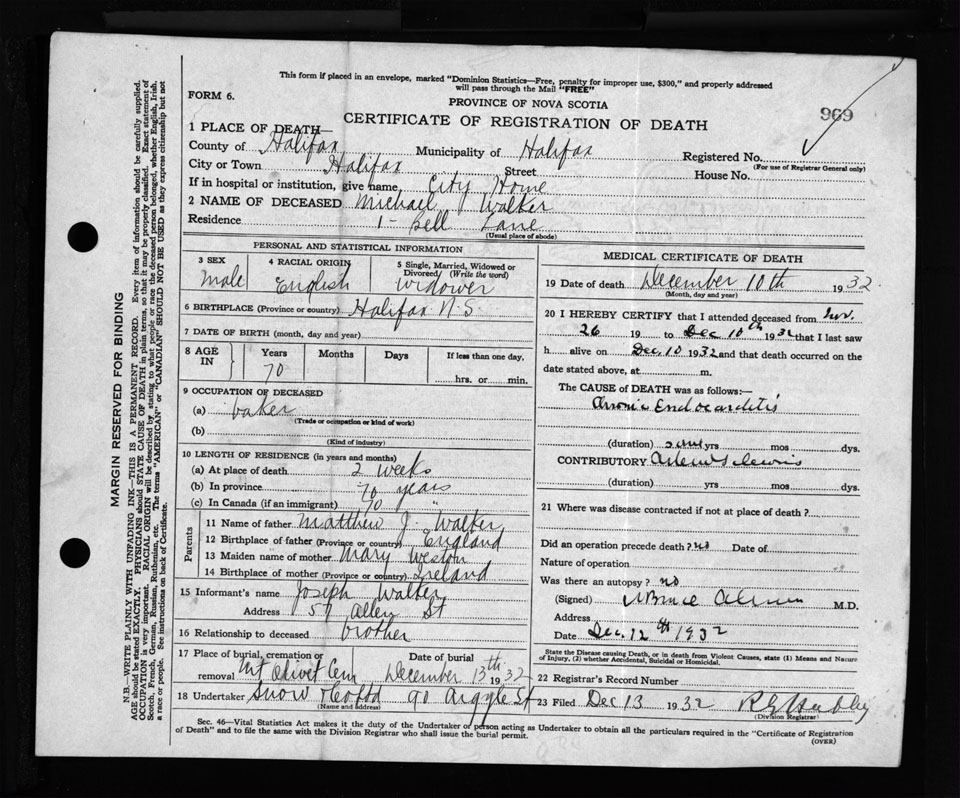 This form if placed in an envelope, marked "Dominion Statistics—Free, penalty for improper use, $300," and properly addressed
will pass through the Mail "FREE"
FORM 6.
PROVINCE OF NOVA SCOTIA
969
CERTIFICATE OF REGISTRATION OF DEATH
1 PLACE OF DEATH—
County of Halifax Municipality of Halifax Registered No.
(For use of Registrar General only)
City or Town Halifax Street House No.
If in hospital or institution, give name, City Home
2 NAME OF DECEASED Michael Walker
Residence 1 - Bell Lane
(Usual place of abode)
PERSONAL AND STATISTICAL INFORMATION
3 SEX 4 RACIAL ORIGIN 5 Single, Married, Widowed or
Divorced (Write the word)
Male English Widower
6 BIRTHPLACE (Province or country) Halifax N.S.
7 DATE OF BIRTH (month, day and year)
8 AGE IN Years Months Days If less than one day,
70
hrs. or min.
9 OCCUPATION OF DECEASED
(a) baker
(Trade or occupation or kind of work)
(b)
(Kind of industry)
10 LENGTH OF RESIDENCE (in years and months)
(a) At place of death 2 weeks
(b) In province 70 years
(c) In Canada (if an immigrant) 70 "
Parents
11 Name of father Matthew J. Walker
12 Birthplace of father (Province or country) England
13 Maiden name of mother Mary Weston
14 Birthplace of mother (Province or country) Ireland
15 Informant's name Joseph Walker
Address 57 Allen St
16 Relationship to deceased brother
17 Place of burial, cremation or Date of burial
removal Mt Olivet Cem December 13th 1932
18 Undertaker Snow & Co Ltd 90 Argyle St
(Name and address)
MEDICAL CERTIFICATE OF DEATH
19 Date of death December 10th 1932
(Month, day and year)
20 I HEREBY CERTIFY that I attended deceased from Nov.
26 19 to Dec 10th 1932 that I last saw
h alive on Dec. 10 1932 and that death occurred on the
date stated above, at m.
The CAUSE of DEATH was as follows:—
Chronic Endocarditis
(duration) yrs mos dys.
CONTRIBUTORY
(duration) yrs mos dys.
21 Where was disease contracted if not at place of death?
Did an operation precede death? no Date of
Nature of operation
Was there an autopsy? no
(Signed) M.D.
Address
Date Dec. 12th 1932
State the Disease causing Death, or in death from Violent Causes, state (1) Means and Nature
of Injury, (2) whether Accidental, Suicidal or Homicidal.
22 Registrar's Record Number
23 Filed Dec 13 1932
(Division Registrar)
Sec. 46—Vital Statistics Act makes it the duty of the Undertaker or person acting as Undertaker to obtain all the particulars required in the "Certificate of Registration
of Death" and to file the same with the Division Registrar who shall issue the burial permit.
(OVER)
MARGIN RESERVED FOR BINDING
N.B.—WRITE PLAINLY WITH UNFADING INK—THIS IS A PERMANENT RECORD. Every item of information should be carefully supplied.
AGE should be stated EXACTLY. PHYSICIANS should STATE CAUSE OF DEATH in plain terms, so that it may be properly classified. Exact statement of
OCCUPATION is very important. RACIAL ORIGIN will be described by stating to what people or race the deceased person belonged, whether English, Irish,
Scotch, French, German, Russian, Ruthenian, etc. The terms "AMERICAN" or "CANADIAN" SHOULD NOT BE USED as they express citizenship but not
a race or people. See instructions on back of Certificate.